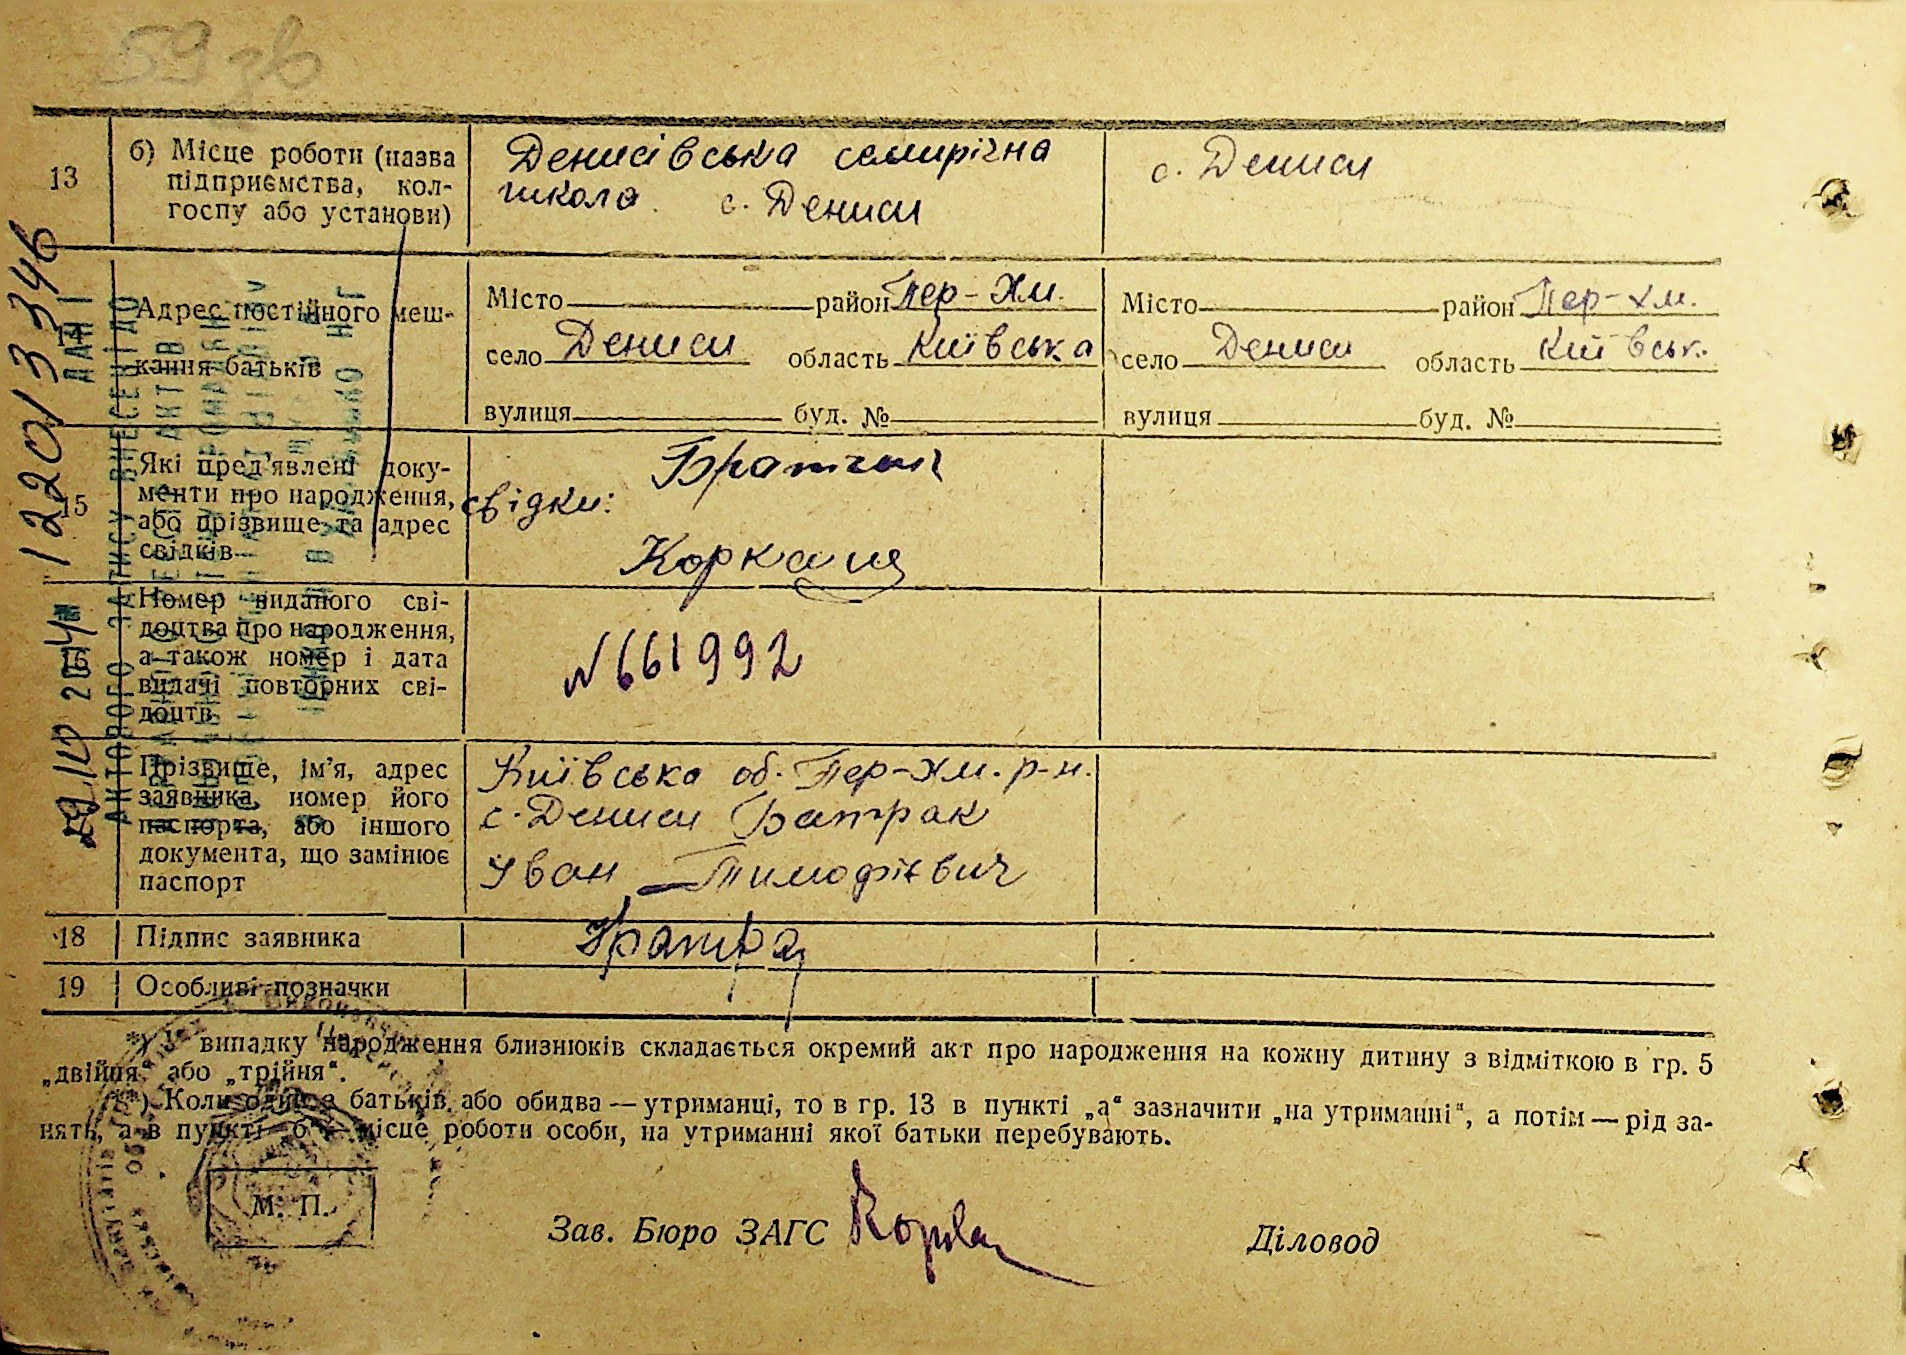 59 зв
13
б) Місце роботи (назва
підприємства, кол-
госпу або установи)
Денисівська семирічна
школа с. Дениси
с. Дениси
14
Адрес постійного меш-
кання батьків
Місто район Пер-Хм.
село Дениси область Київська
вулиця буд. №
Місто район Пер-хм.
село Дениси область Київськ.
вулиця буд. №
15
Які пред'явлені доку-
менти про народження,
або прізвище та адрес
свідків
свідки:
16
Номер виданого сві-
доцтва про народження,
а також номер і дата
видачі повторних сві-
доцтв
N661992
Прізвище, ім'я, адрес
заявника, номер його
паспорта, або іншого
документа, що замінює
паспорт
Київська об. Пер-хм. р-н.
с. Дениси Батрак
Іван Тимофієвич
18
Підпис заявника
19
Особливі позначки
*) У випадку народження близнюків складається окремий акт про народження на кожну дитину з відміткою в гр. 5
„двійня“ або „трійня“.
**) Коли один з батьків або обидва — утриманці, то в гр. 13 в пункті „а“ зазначити „на утриманні“, а потім — рід за-
нять, а в пункті „б“ — місце роботи особи, на утриманні якої батьки перебувають.
М. П.
Зав. Бюро ЗАГС
Діловод